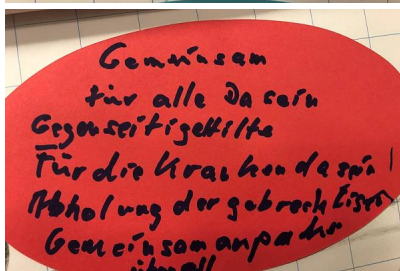 Gemeinsam
für alle Da sein
Gegenseitige Hilfe
Für die Kranken da sein !
Abholung der gebrech
Gemeinsam anpacken
überall